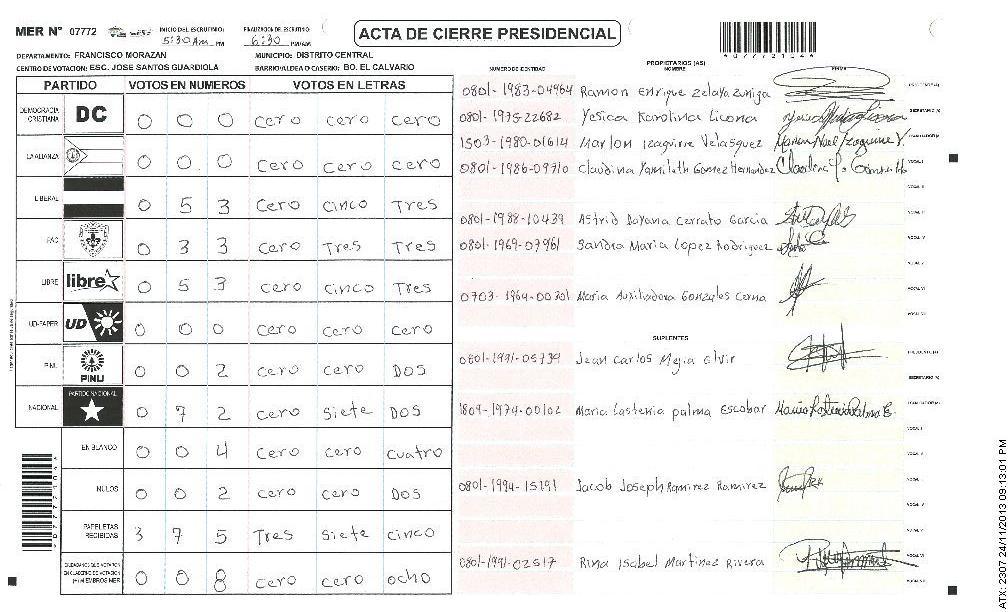 MER N° 07772 INICIO DEL ESCRUTINIO: 5:30 Am PM FINALIZACION DEL ESCRUTINIO: 6:30 PM/AM
ACTA DE CIERRE PRESIDENCIAL
DEPARTAMENTO: FRANCISCO MORAZAN MUNICIPIO: DISTRITO CENTRAL
CENTRO DE VOTACION: ESC. JOSE SANTOS GUARDIOLA BARRIO/ALDEA O CASERIO: BO. EL CALVARIO
PARTIDO VOTOS EN NUMEROS VOTOS EN LETRAS
DEMOCRACIA CRISTIANA DC 0 0 0 cero cero cero
LA ALIANZA 0 0 0 cero cero cero
LIBERAL 0 5 3 cero cinco Tres
PAC 0 3 3 cero Tres Tres
LIBRE libre 0 5 3 cero cinco Tres
UD-FAPER UD 0 0 0 cero cero cero
PINU PINU 0 0 2 cero cero DOS
NACIONAL PARTIDO NACIONAL 0 7 2 cero siete DOS
EN BLANCO 0 0 4 cero cero cuatro
NULOS 0 0 2 cero cero DOS
PAPELETAS RECIBIDAS 3 7 5 Tres siete cinco
CIUDADANOS QUE VOTARON EN CUADERNO DE VOTACION (+) MIEMBROS MER 0 0 8 cero cero ocho
PROPIETARIOS (AS)
NUMERO DE IDENTIDAD NOMBRE FIRMA
0801-1983-04964 Ramon Enrique Zelaya Zuniga PRESIDENTE (A)
0801-1975-22682 Yesica Karolina Licona SECRETARIO (A)
1503-1980-01614 Marlon Izaguirre Velasquez ESCRUTADOR (A)
0801-1986-09710 Claudina Yamileth Gomez Hernandez VOCAL I
VOCAL II
0801-1988-10439 Astrid Dayana Cerrato Garcia VOCAL III
0801-1969-07961 Sandra Maria Lopez Rodriguez VOCAL IV
VOCAL V
0703-1964-00301 Maria Auxiliadora Gonzales Cerna VOCAL VI
VOCAL VII
SUPLENTES
0801-1991-05739 Jean Carlos Mejia elvir PRESIDENTE (A)
SECRETARIO (A)
1809-1974-00102 Maria Lastenia palma Escobar ESCRUTADOR (A)
VOCAL I
VOCAL II
0801-1994-15191 Jacob Joseph Ramirez Ramirez VOCAL III
VOCAL IV
VOCAL V
0801-1991-02517 Rina Isabel Martinez Rivera VOCAL VI
VOCAL VII
ATX: 2307 24/11/2013 09:13:01 PM